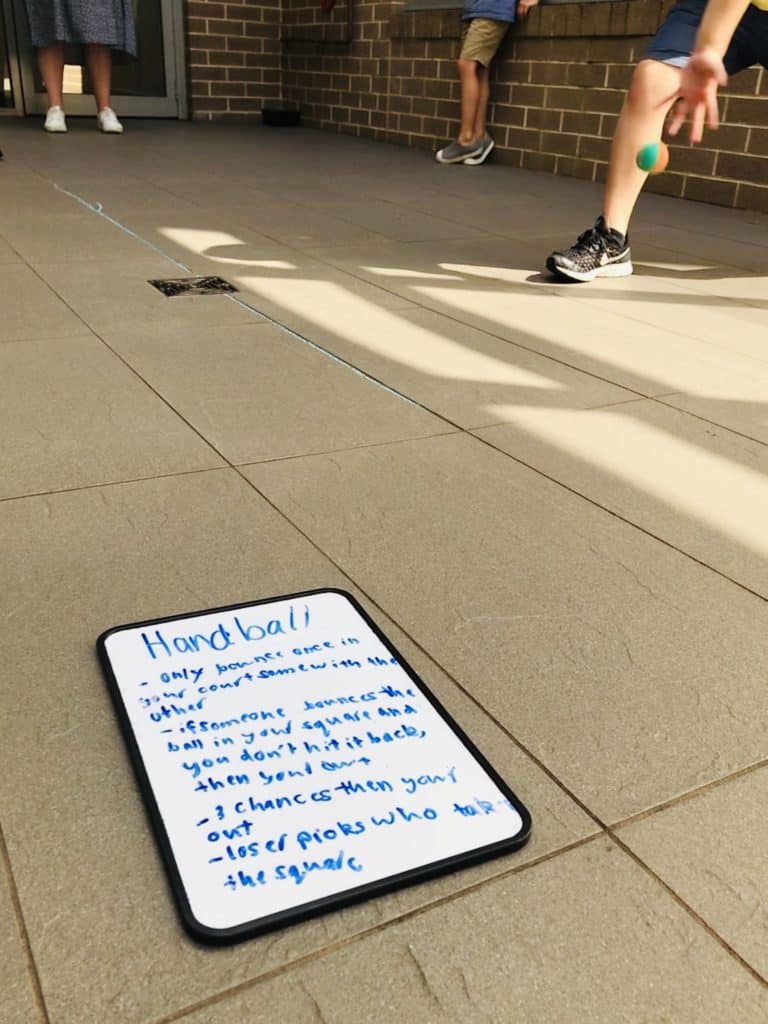 Handball
- only bounce once in
your court same with the
other
- if someone bounces the
ball in your square and
you don't hit it back,
then your out
- 3 chances then your
out
- loser picks who
the square